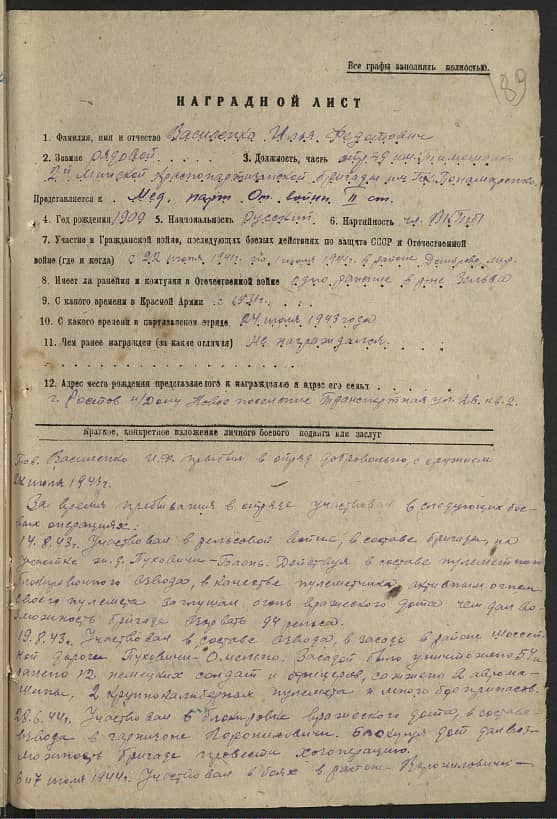 Все графы заполнять полностью.
189
НАГРАДНОЙ ЛИСТ
1. Фамилия, имя и отчество Василенка Илья Федотович
2. Звание рядовой 3. Должность, часть
2й Минской партизанской бригады им.
Представляется к Мед. парт. От. войны II ст.
4. Год рождения 1909 5. Национальность русский 6. Партийность чл. ВКПб
7. Участие в Гражданской войне, последующих боевых действиях по защите СССР и Отечественной
войне (где и когда) с 22 июня 1941 по июля 1941 г. в районе
8. Имеет ли ранения и контузии в Отечественной войне одно ранение в р-не
9. С какого времени в Красной Армии с
10. С какого времени в партизанском отряде 24 июля 1943 года
11. Чем ранее награжден (за какие отличия) Не награждался
12. Адрес места рождения представляемого к награждению и адрес его семьи
г. Ростов н/Дону Новое поселение Транспортная ул. 26. кв. 2.
Краткое, конкретное изложение личного боевого подвига или заслуг
Тов. Василенко И.Ф. прибыл в отряд добровольно, с оружием
24 июля 1943 г.
За время пребывания в отряде участвовал в следующих бое-
вых операциях:
14.8.43 г. Участвовал в рельсовой войне, в составе бригады, на
участке ж.д. Пуховичи - Блонь. Действуя в составе пулеметного
блокировочного взвода, в качестве пулеметчика, активным огнем
своего пулемета заглушал огонь вражеского дота чем дал во-
зможность бригаде взорвать 94 рельса.
19.8.43 г. Участвовал в составе взвода, в засаде в районе шоссей-
ной дороги Пуховичи - Омельно. Засадой было уничтожено 54 и
ранено 12 немецких солдат и офицеров, сожжено 2 автома-
шины, 2 крупнокалиберных пулемета и много боеприпасов.
28.6.44 г. Участвовал в блокировке вражеского дота, в составе
взвода в гарнизоне Блокируя дот дал воз-
можность бригаде провести хозоперацию.
6 и 7 июля 1944 г. Участвовал в боях в районе